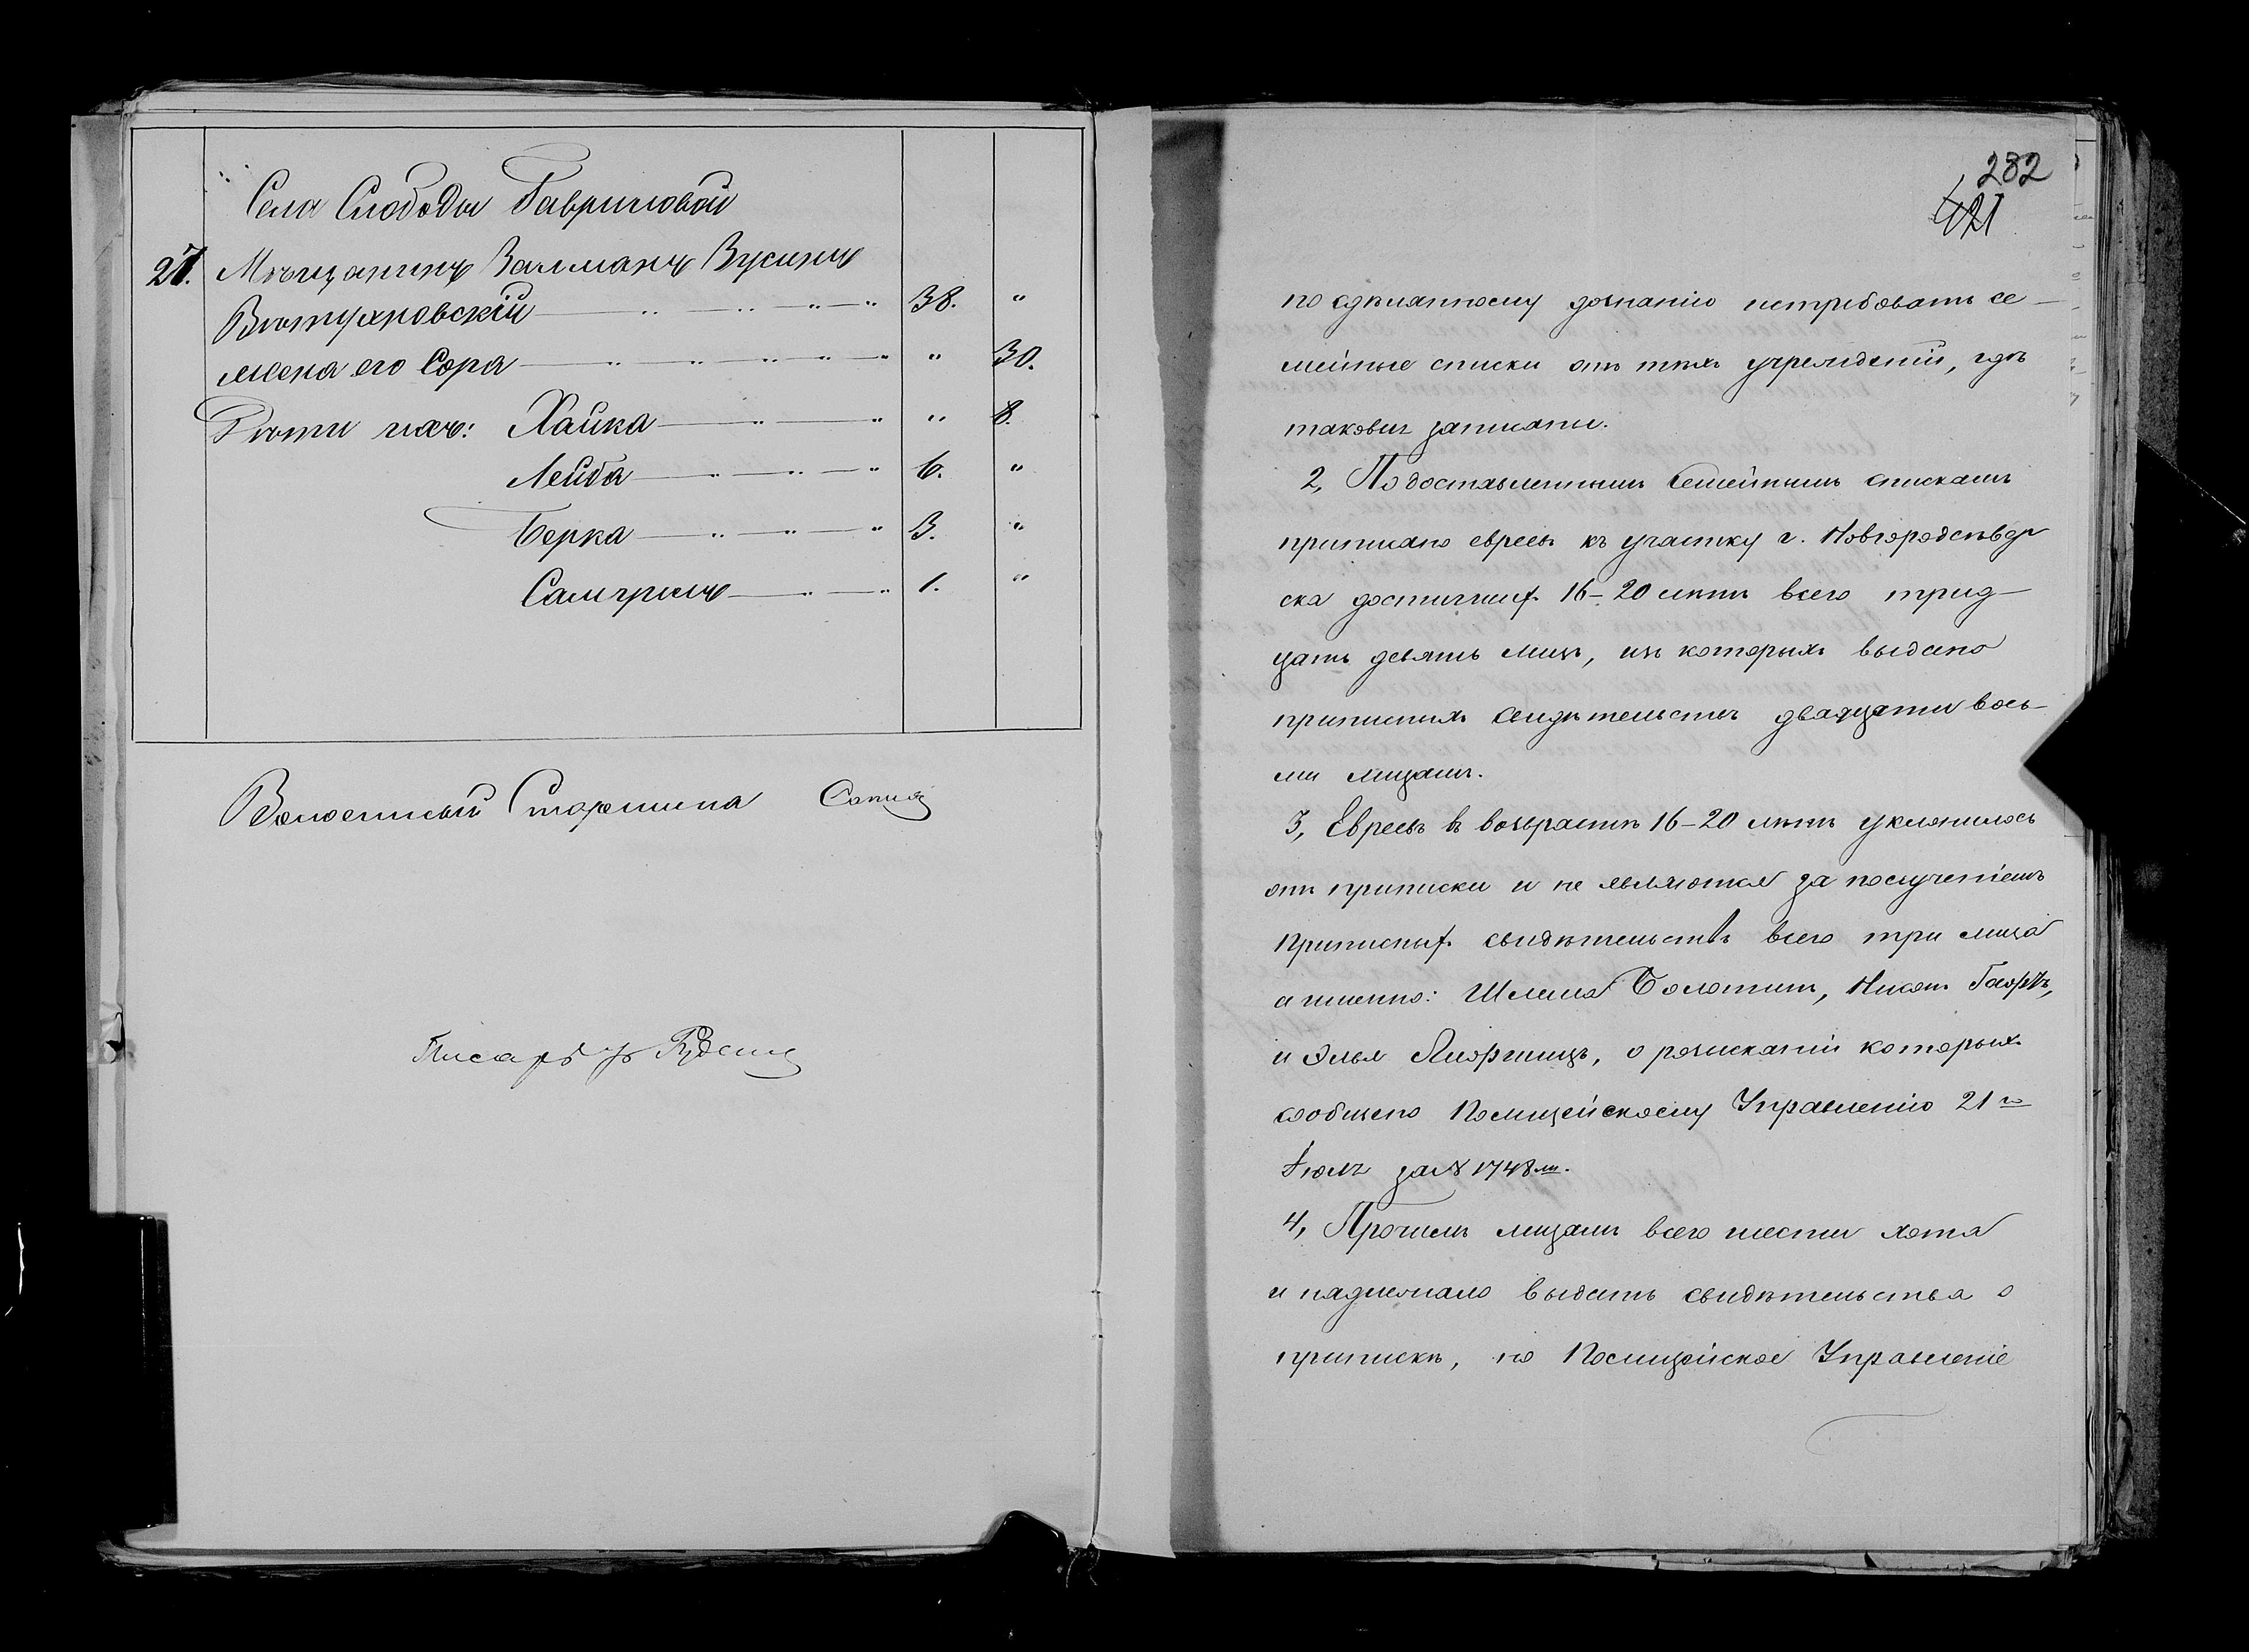 Села Слободы Гавриловой
27. Мѣщанинъ Залманъ
38. "
жена его Сора " 30.
Дѣти ихъ: Хайка " 8.
Лейба 6. "
Берка 3. "
1. "
Волостный Старшина
Писарь
282
421
по сдѣланному дознанію истребовать се-
мейные списки отъ тѣхъ учрежденій, гдѣ
таковыя записаны.
2, По доставленнымъ Семейнымъ спискамъ
приписано евреевъ къ участку г. Новгородсѣвер
ска достигших 16-20 лѣтъ всего трид-
цать девять лицъ, изъ которыхъ выдано
приписныхъ свидѣтельствъ двадцати вось-
ми лицамъ.
3, Евреевъ въ возрастѣ 16-20 лѣтъ уклонилось
отъ приписки и не являются за полученіемъ
приписных свидѣтельствъ всего три лица
а именно: Шлема Болотинъ,
и Элья о розысканіи которыхъ
сообщено Полицейскому Управленію 21 го
Іюля за № 1748 мъ.
4, Прочимъ лицамъ всего шести хотя
и надлежало выдать свидѣтельства о
припискѣ, но Полицейское Управленіе